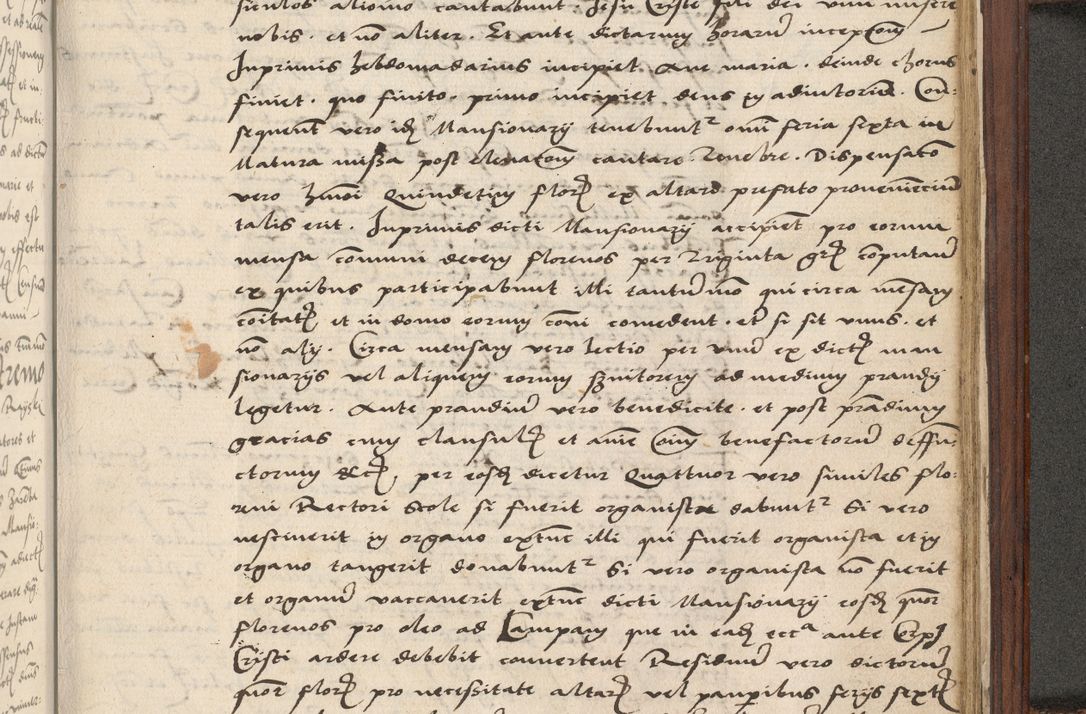 sicutos alioino cantabunt. Jesu Criste fili dei vivi misere
nobis. et nō aliter. Et ante dictarum horarū inceptōem
Inprimis hebdomadarius incipiet. Ave maria. deinde chorus
finiet. quo finito. primo incipiet deus in adiutoriū. Con:
sequent vero idem Mansionarij tenebunt̄ omni feria sexta in
Matura missa post elevatōem cantare Tenebre. Dispensatō
vero hmōi Quindetim florē ex altari prefato provenieciū
talis erit. Inprimis dicti Mansionarij accipiēt pro eorum
mensa cōmuni decem florenos per Triginta grē cōputandū
ex quibus participabunt illi tantūmō qui circa mēsam
cōitatē et in domo eorum cōni comedent. et si sit vnus. et
nō alij. Circa mensam vero lectio per vnū ex dictē man
sionarijs vel aliquem eorum servitorem ad medium prandij
legetur. Ante prandiū vero benedicite. et post prādium
gracias cum clausulē et anīe Oīm benefactorū deffun:
ctorum &cē, per eosdē dicetur Quattuor vero similes flo:
reni Rectori Scole si fuerit organista dabunt̄ Si vero
nesciverit in organo extūc illi qui fuerit organista et in
organo tangerit donabunt̄ Si vero organista nō fuerit
et organū vaccaverit extūc dicti Mansionarij eosdē quor
florenos pro oleo ad Lampam que in eadē ecca ante Corpī
Cristi ardere debebit convertent Residuū vero dictorū
quor florē pro necessitate altarē vel pauperibus ferijs sextē